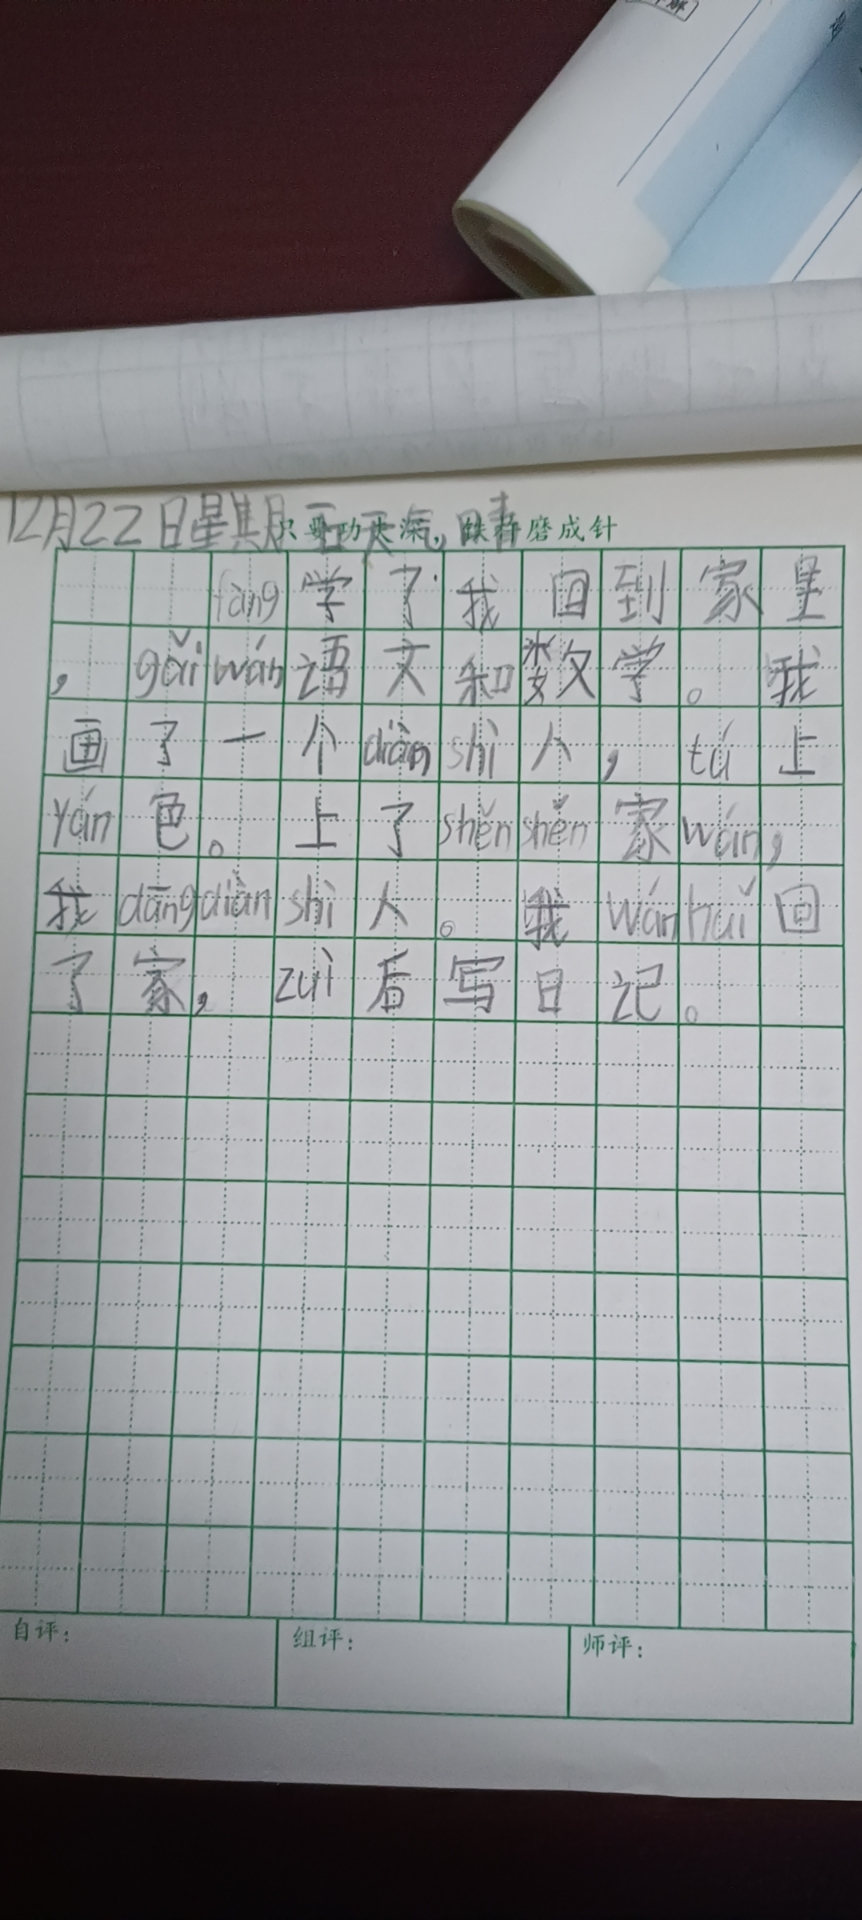 12月22日星期五天气晴
只要功夫深，铁杵磨成针
fàng学了我回到家里
，gǎi wán语文和数学。我
画了一个diàn shì人，tú上
yán色。上了shěn shěn家wán，
我dāng diàn shì人。我wán huí回
了家，zuì后写日记。
自评：
组评：
师评：